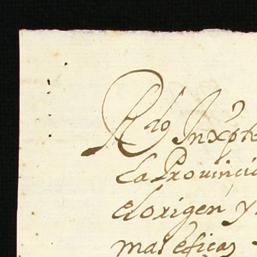 Rdo Inxpto
la Provincia
el origen y
maleficas